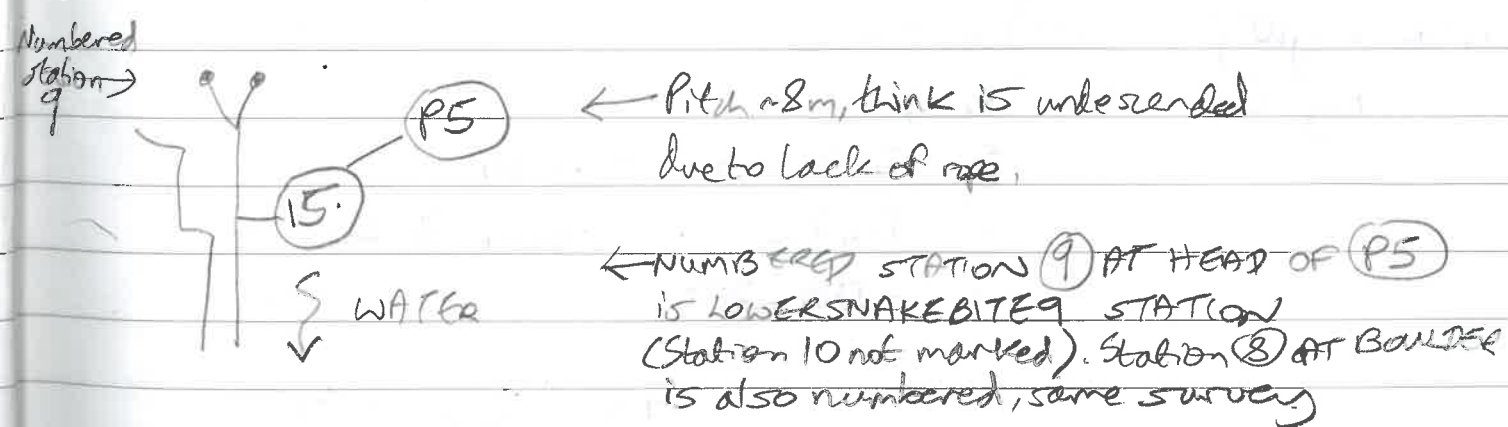 Numbered
station→
9
P5
15.
WATER
← Pitch ~8m, think is undescended
due to lack of rope.
← NUMBERED STATION 9 AT HEAD OF P5
is LOWERSNAKEBITE9 STATION
(Station 10 not marked). Station 8 AT BOULDER
is also numbered, same survey